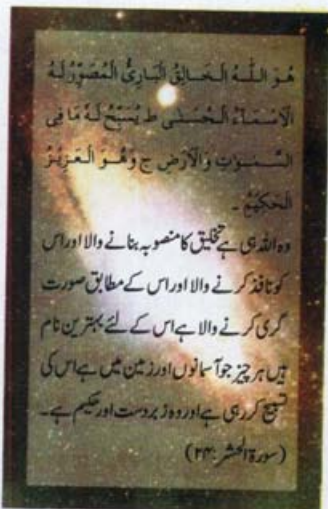 هُوَ اللّٰهُ الْخَالِقُ الْبَارِئُ الْمُصَوِّرُ لَهُ
الْاَسْمَاءُ الْحُسْنٰى ط يُسَبِّحُ لَهُ مَا فِى
السَّمٰوٰتِ وَالْاَرْضِ ج وَهُوَ الْعَزِيْزُ
الْحَكِيْمُ ۔
وہ اللہ ہی ہے تخلیق کا منصوبہ بنانے والا اور اس
کو نافذ کرنے والا اور اس کے مطابق صورت
گری کرنے والا ہے اس کے لئے بہترین نام
ہیں ہر چیز جو آسمانوں اور زمین میں ہے اس کی
تسبیح کر رہی ہے اور وہ زبردست اور حکیم ہے۔
(سورۃ الحشر:۲۴)